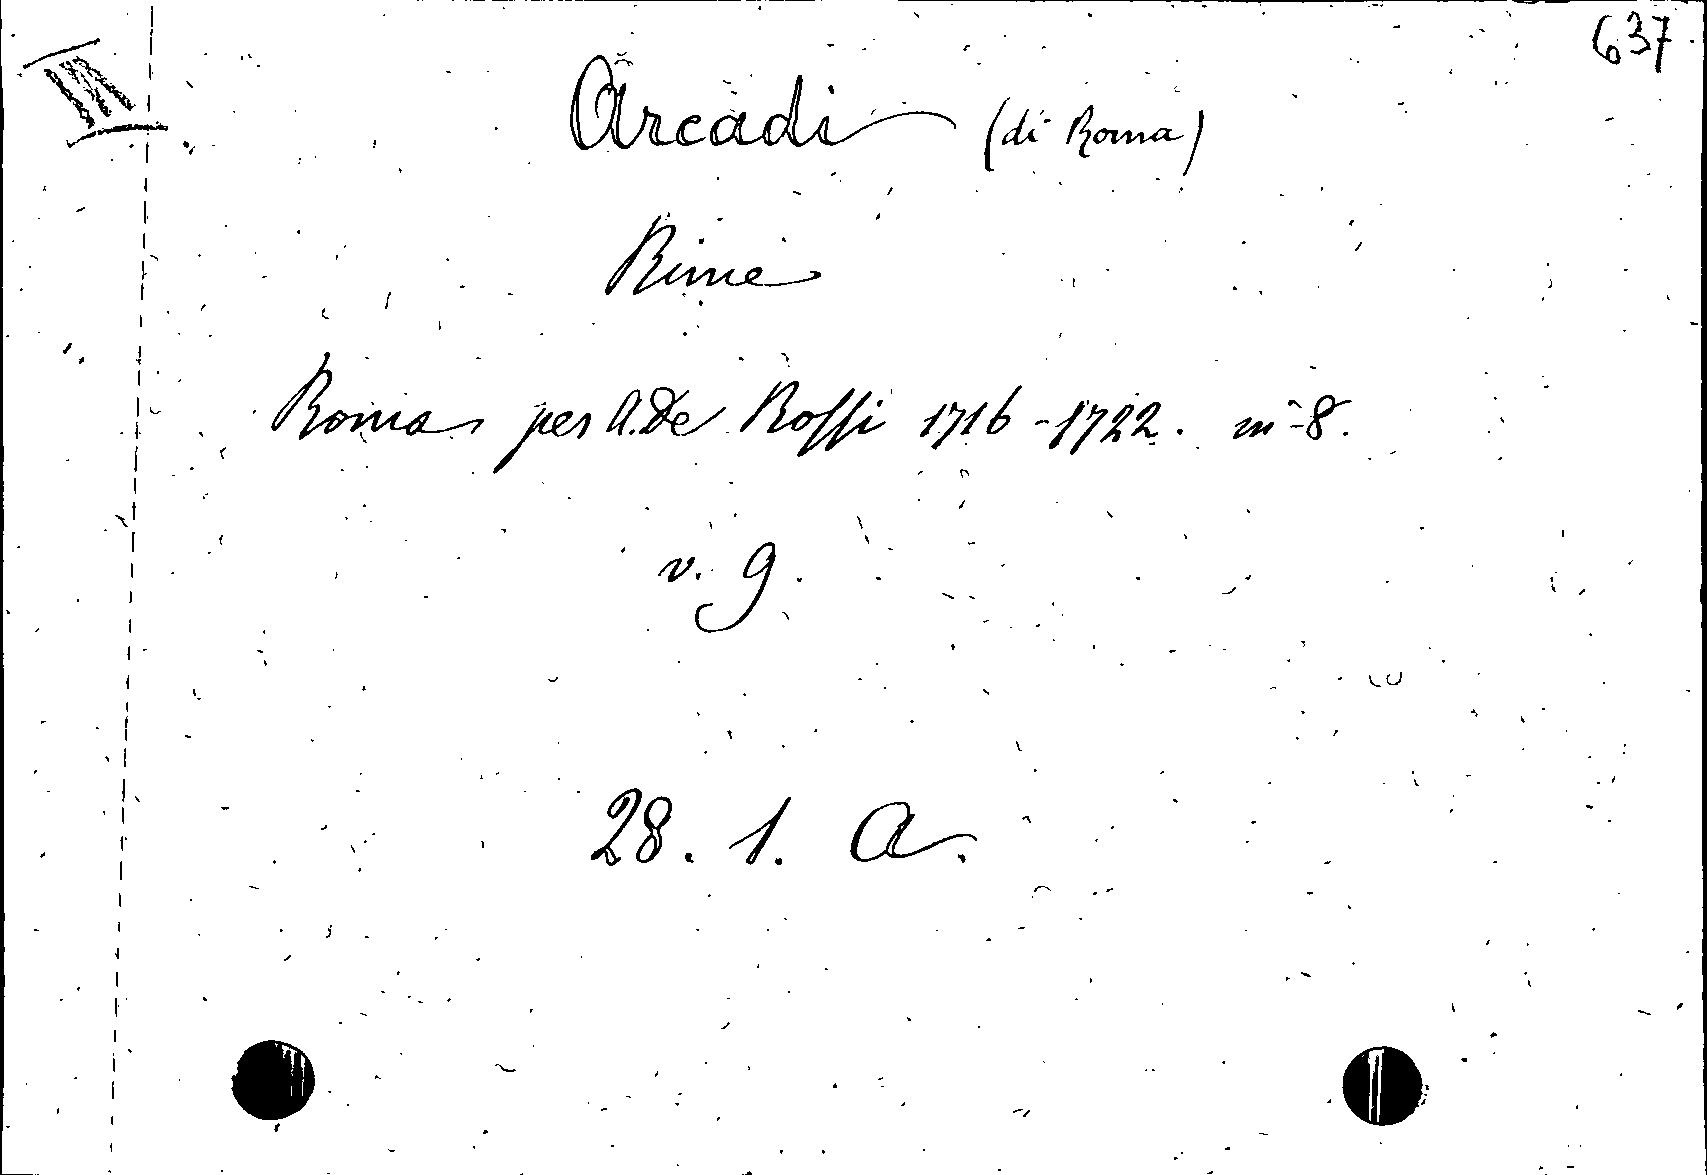 637
VII
Arcadi (di Roma)
Rime
Roma per A. De Rossi 1716-1722. in-8.
v. 9.
28. 1. A.